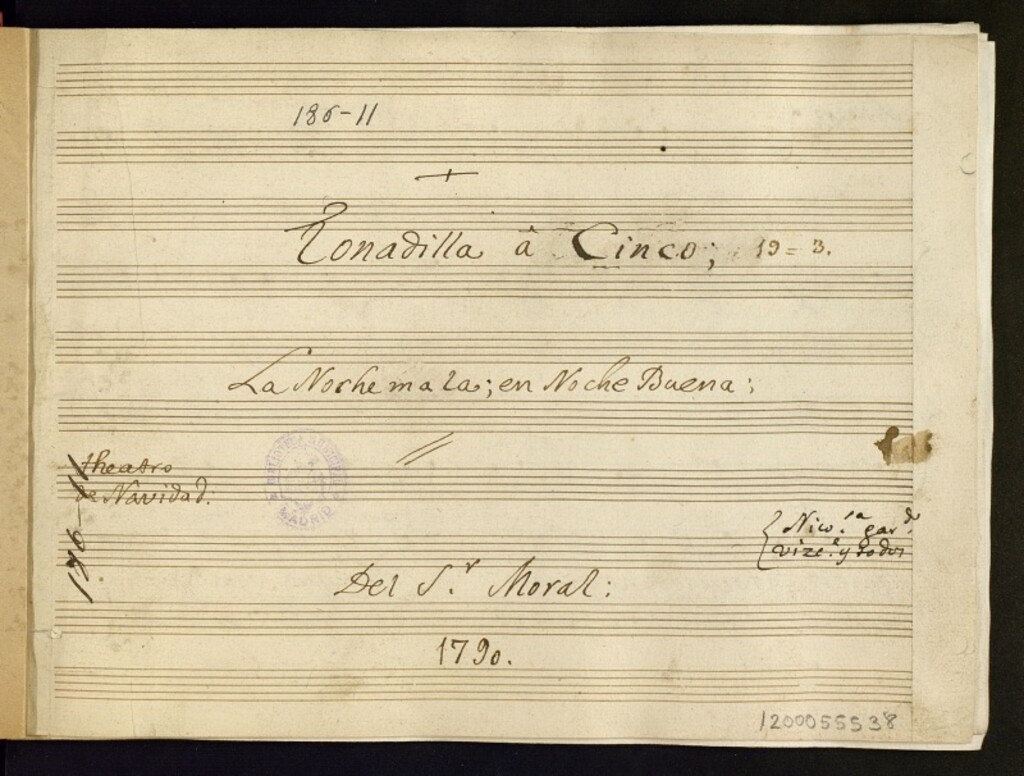 186-11
Tonadilla â Cinco; 19=3.
La Noche mala; en Noche Buena;
theatro
de Navidad.
MADRID
Nico.ª gar.do
vize.te y todos
Del S.r Moral:
1790.
1200055538